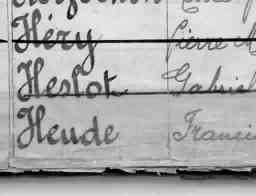 Héry Pierre M
Heslot Gabriel
Heude Franci